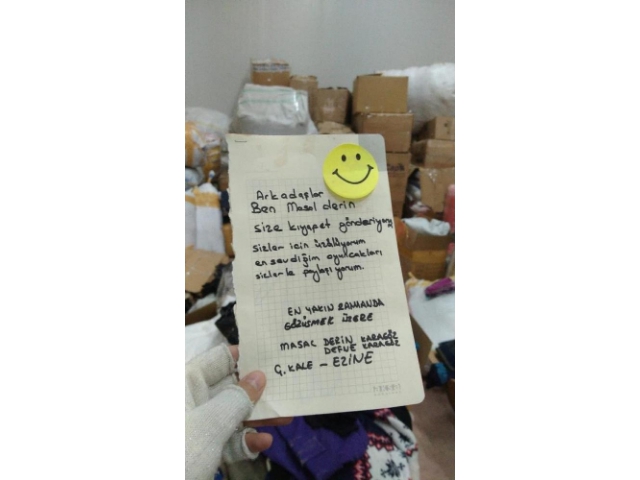 Arkadaşlar
Ben Masal derin
size kıyafet gönderiyoruz
sizler için üzülüyorum
en sevdiğim oyuncakları
sizlerle paylaşıyorum.
EN YAKIN ZAMANDA
GÖRÜŞMEK ÜZERE
MASAL DERİN KARAGÖZ
DEFNE KARAGÖZ
Ç.KALE - EZİNE